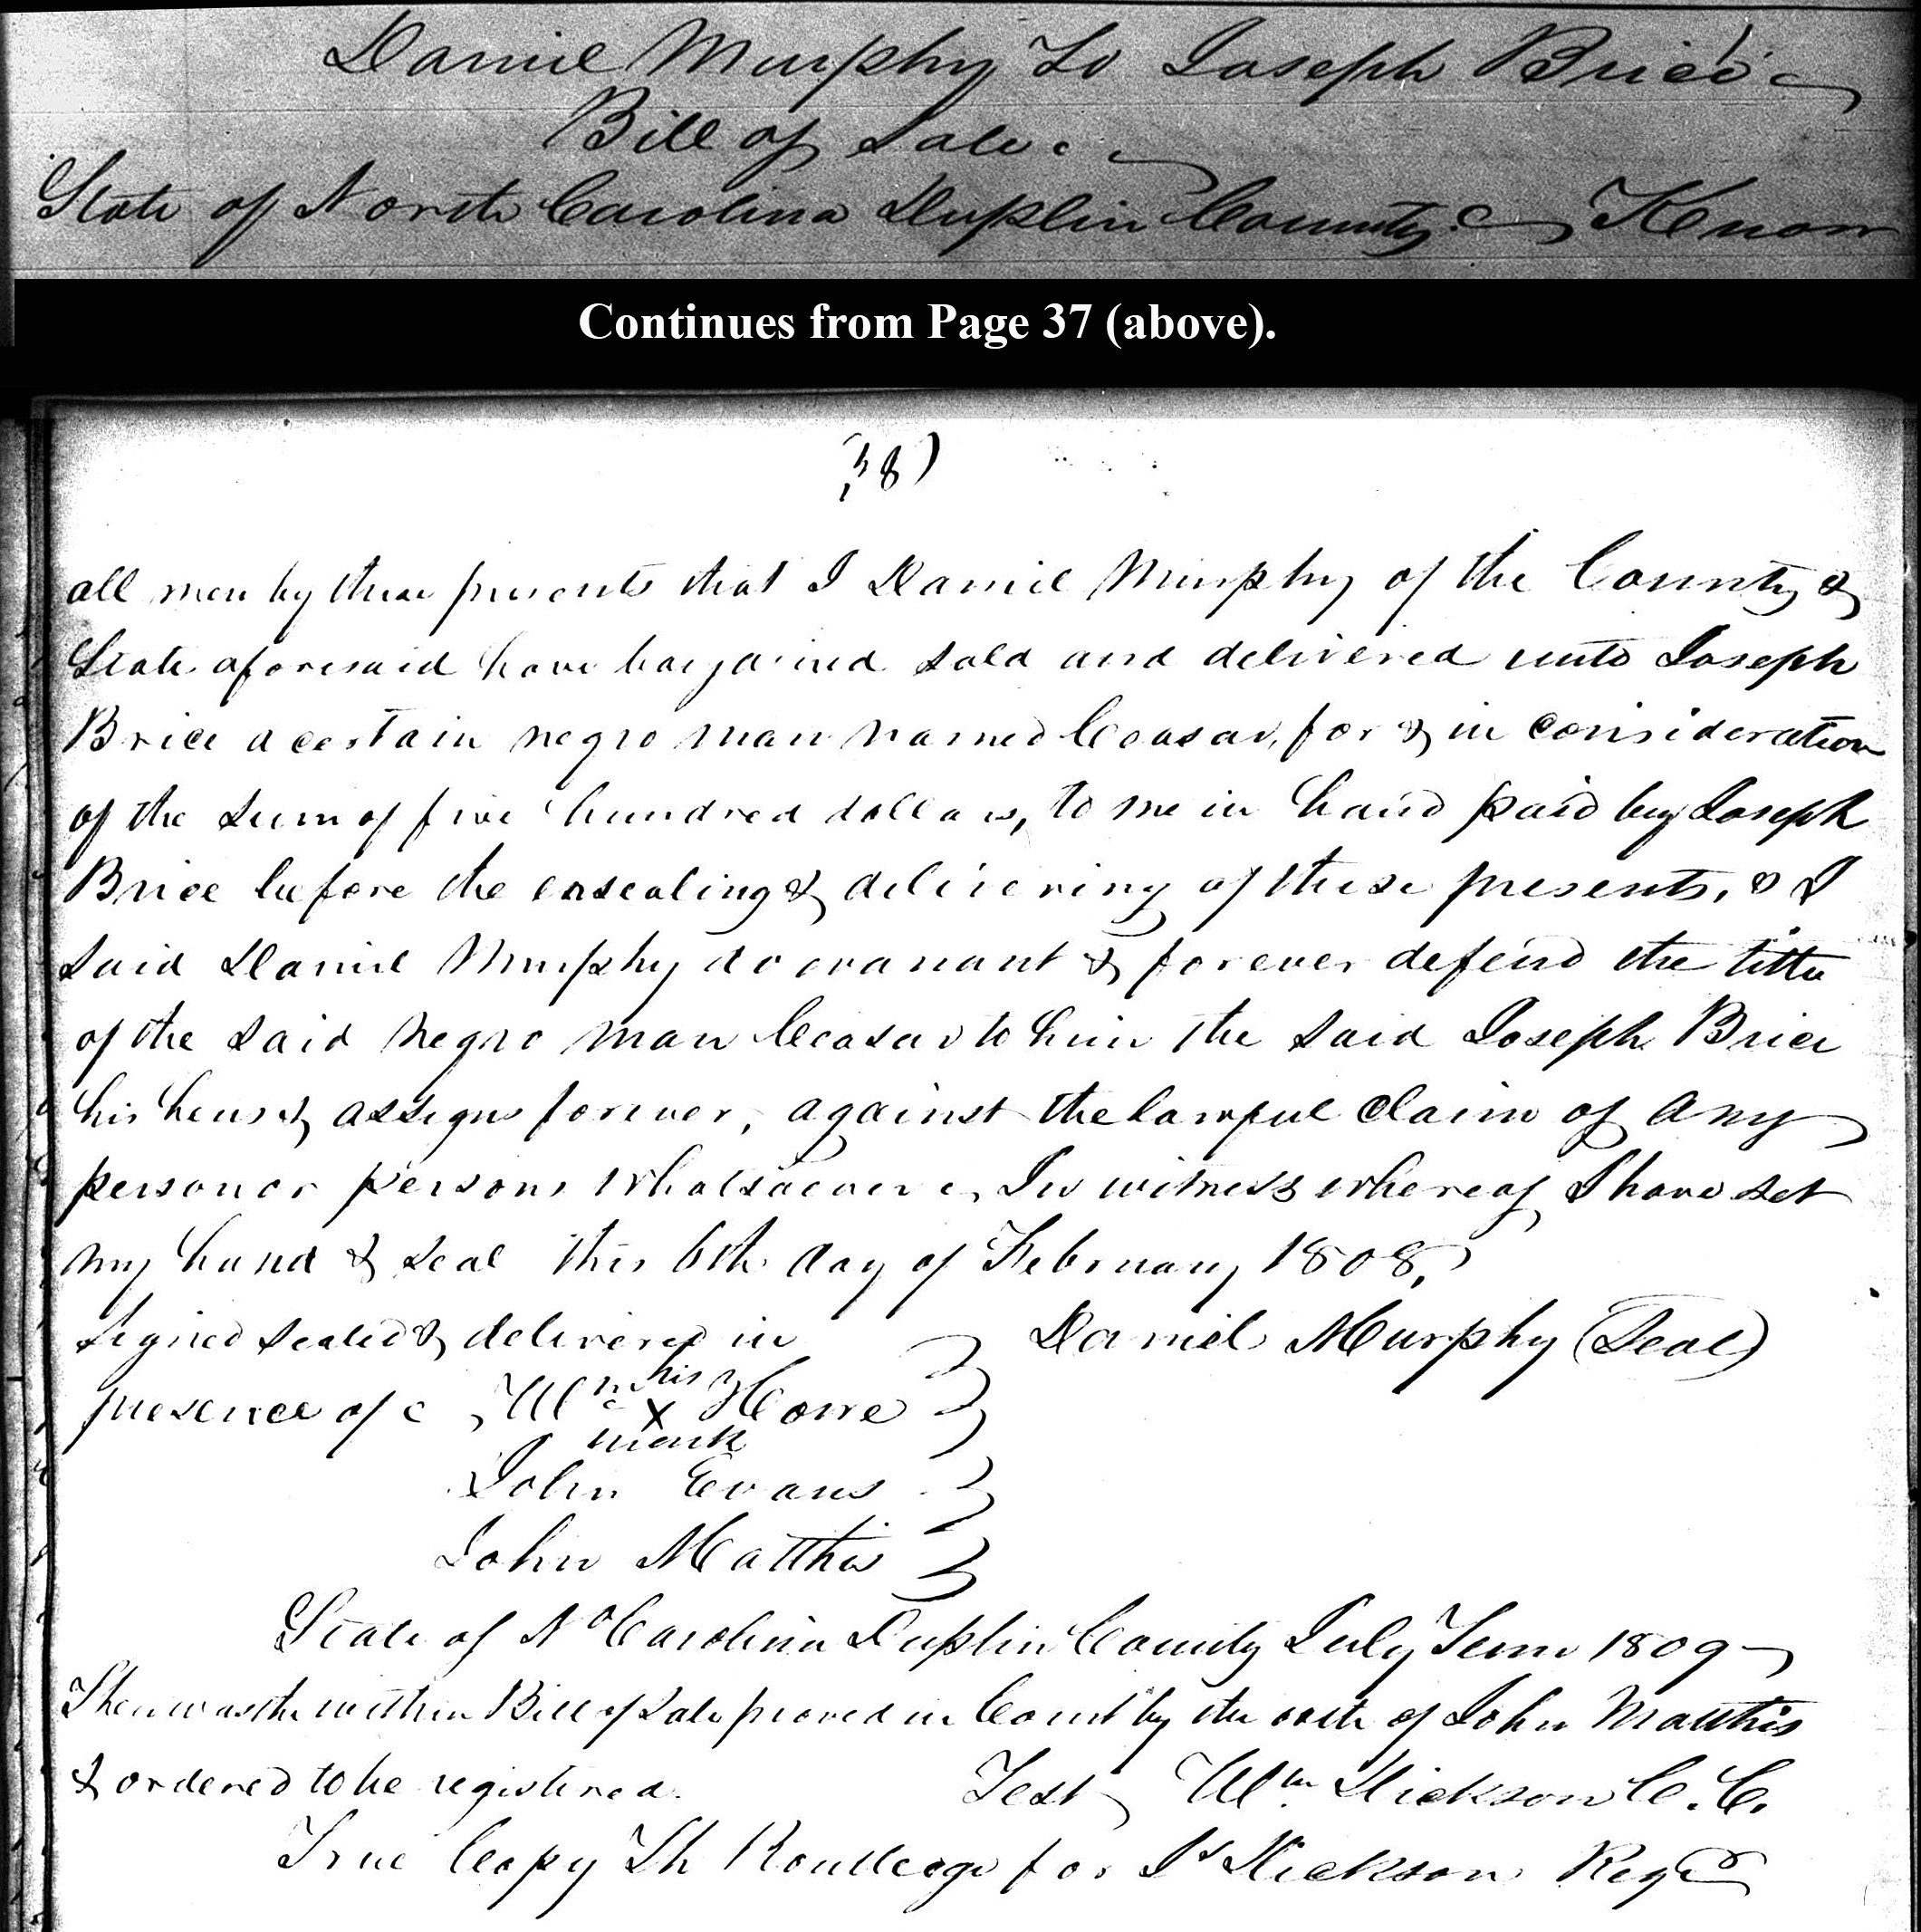 Daniel Murphy To Joseph Brice
Bill of Sale.
State of North Carolina Duplin County. Know
Continues from Page 37 (above).
38)
all men by these presents that I Daniel Murphy of the County &
State aforesaid have bargained sold and delivered unto Joseph
Brice a certain negro man named Ceasar, for & in consideration
of the sum of five hundred dollars, to me in hand paid by Joseph
Brice before the ensealing & delivering of these presents, & I
said Daniel Murphy do cvanant & forever defend the title
of the said negro man Ceasar to him the said Joseph Brice
his heirs & assigns forever, against the lawful claim of any
person or persons whatsoever In witness whereof I have set
my hand & seal this 6th day of February 1808.
Signed sealed & delivered in Daniel Murphy (Seal)
presence of Wm his x mark Howe
John Evans
John Matthis
State of No Carolina Duplin County July Term 1809
Then was the within Bill of Sale proved in Court by the oath of John Matthis
& ordered to be registered. Test Wm Dickson C. C.
True Copy Th Routledge for Js Dickson Regr